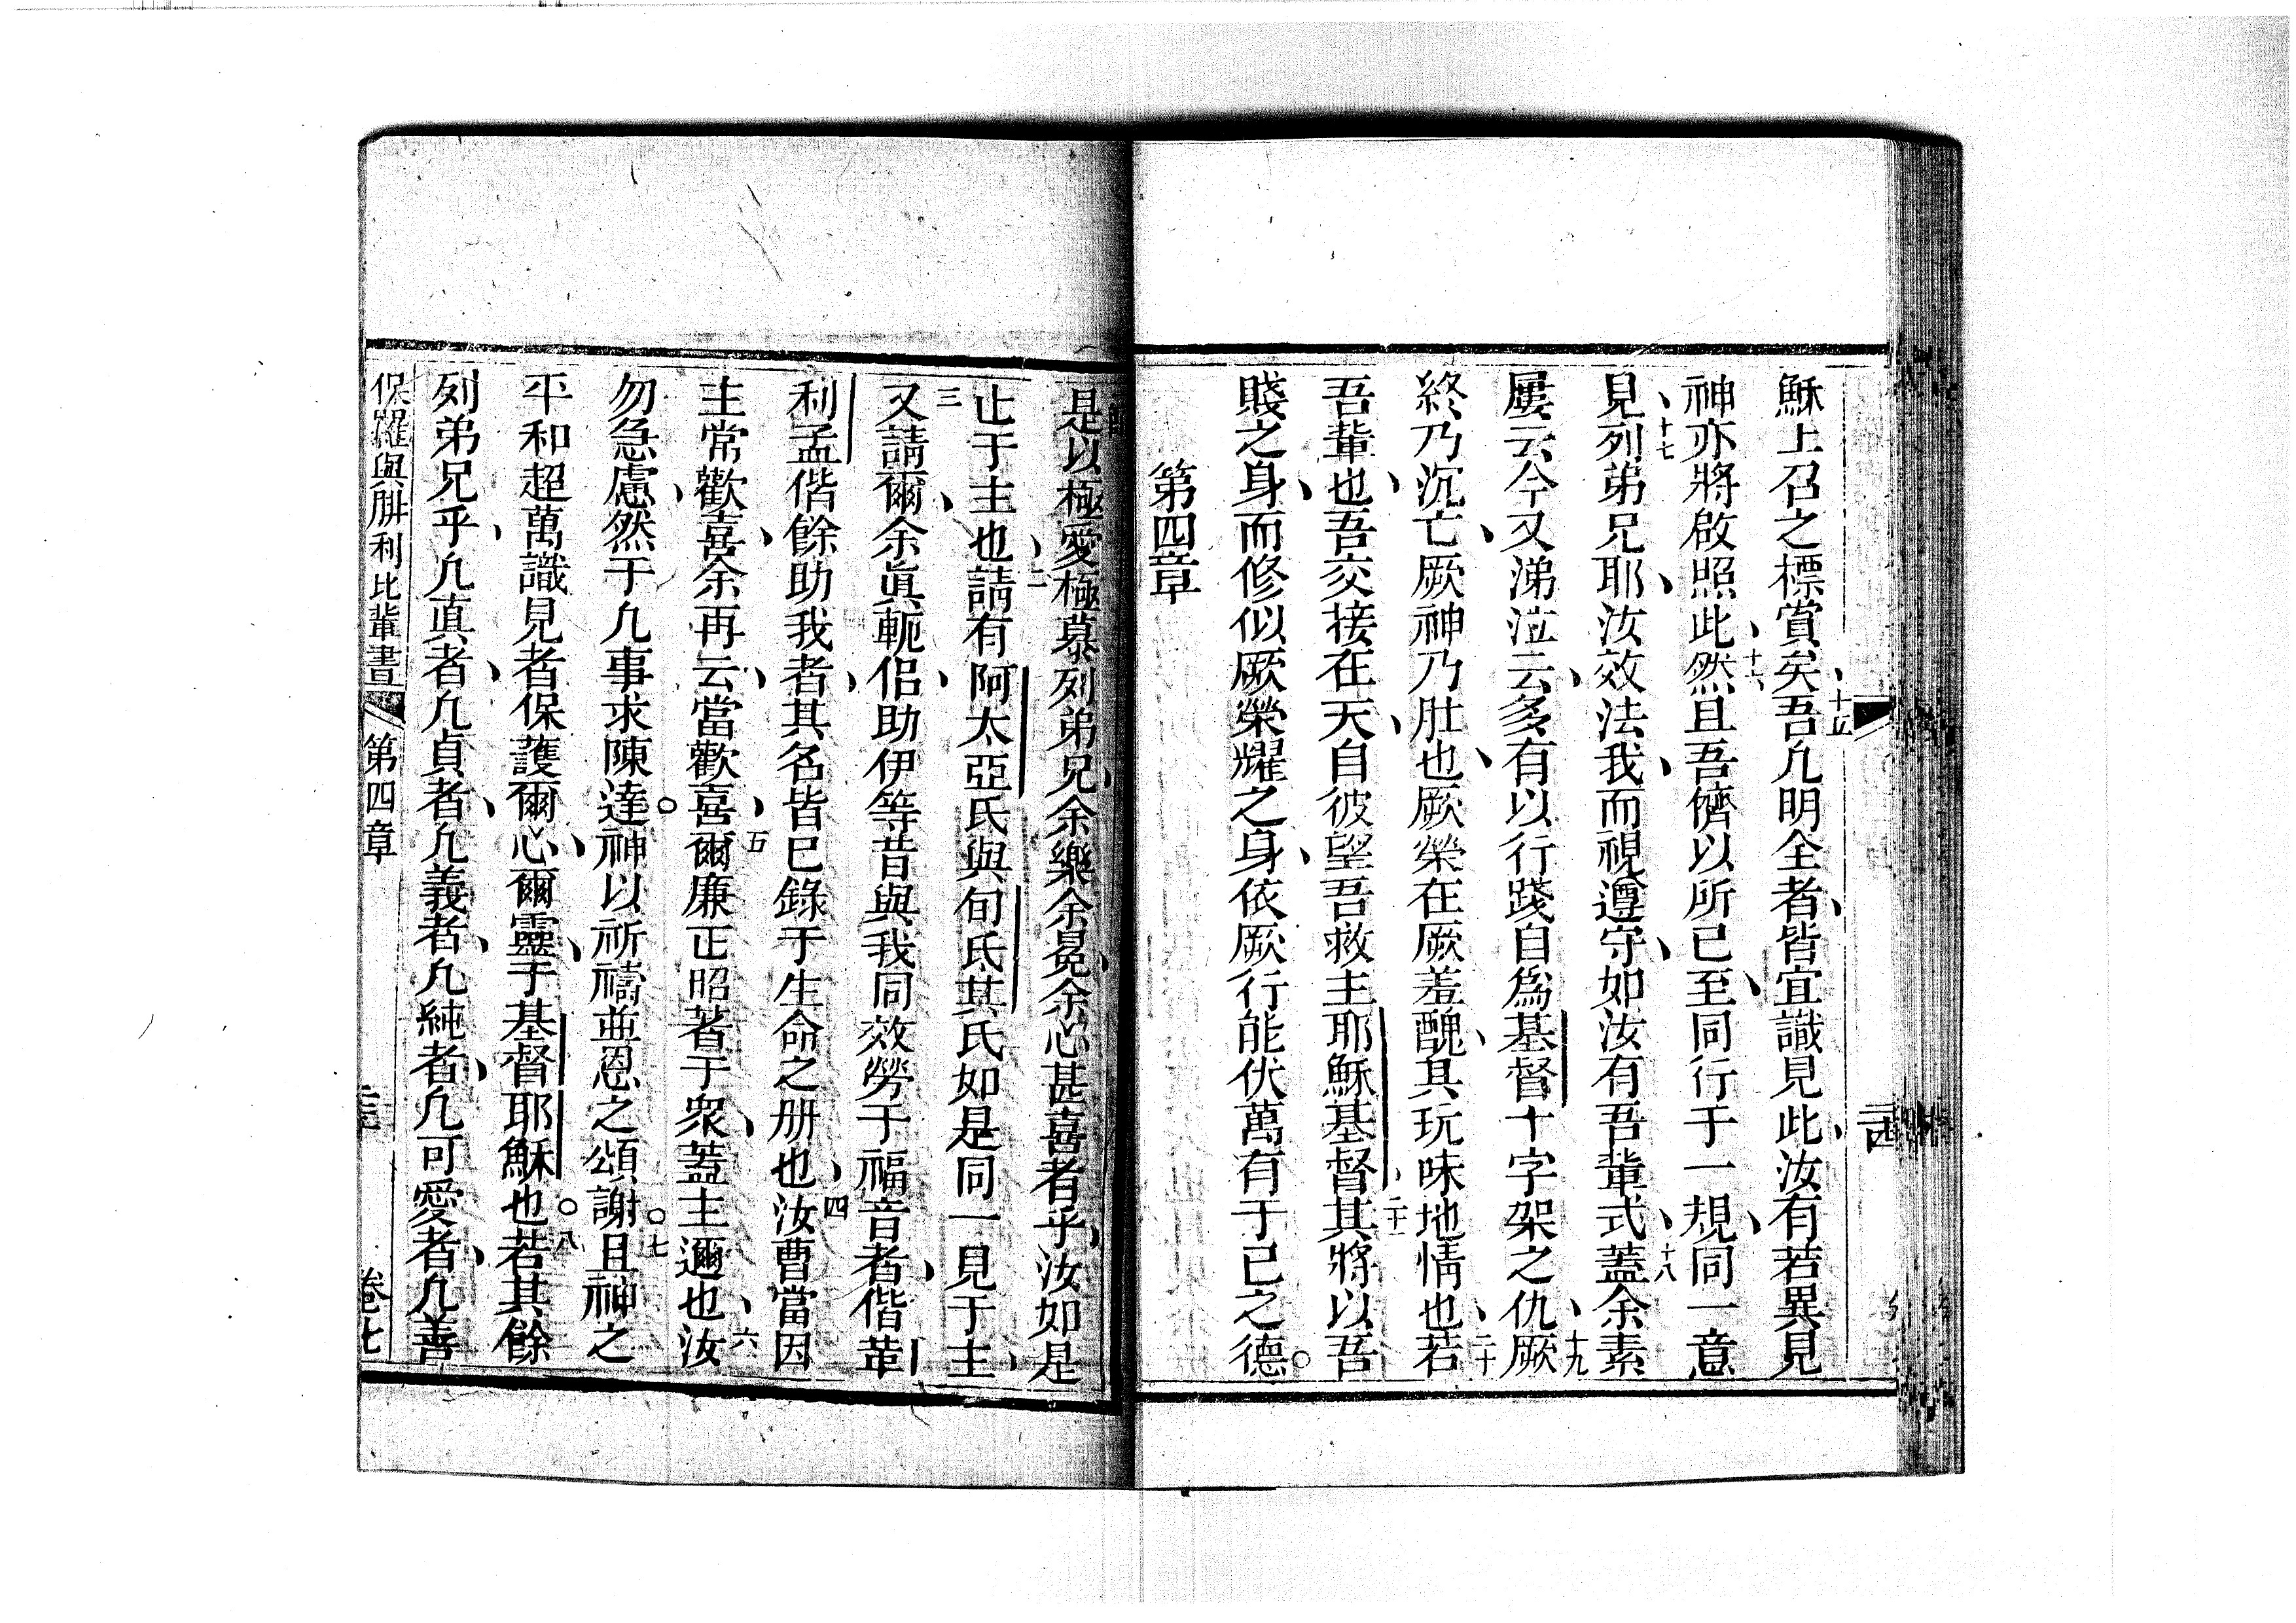 穌上召之標賞矣、十五吾凢明全者、皆宜識見此、汝有若異見
神亦將啟照此、十六然且吾儕以所已至、同行于一規、同一意
見、十七列弟兄耶、汝效法我、而視遵守、如汝有吾輩式、十八蓋余素
屢云、今又涕泣云、多有以行踐自爲基督十字架之仇、十九厥
終乃沉亡、厥神乃肚也、厥榮在厥羞醜、其玩味地情也、二十若
吾輩也、吾交接在天、自彼望吾救主耶穌基督、二十一其將以吾
賤之身、而修似厥榮耀之身、依厥行能伏萬有于己之德。
第四章
是以極愛極慕列弟兄、余樂余冕、余心甚喜者乎、汝如是
止于主也、二請有阿太亞氏與旬氏其氏如是同一見于主、
三又請爾、余眞軛侶、助伊等昔與我同效勞于福音者、偕革
利孟偕餘助我者、其名皆已錄于生命之册也、四汝曹當因
主常歡喜、余再云、當歡喜、五爾廉正昭著于衆、蓋主邇也、六汝
勿急慮、然于凢事求陳達神。以祈禱並恩之頌謝。七且神之
平和超萬識見者、保護爾心、爾靈、于基督耶穌也。八若其餘
列弟兄乎、凢真者、凢貞者、凢義者、凢純者、凢可愛者、凢善
保羅與肼利比輩書 第四章 卷七